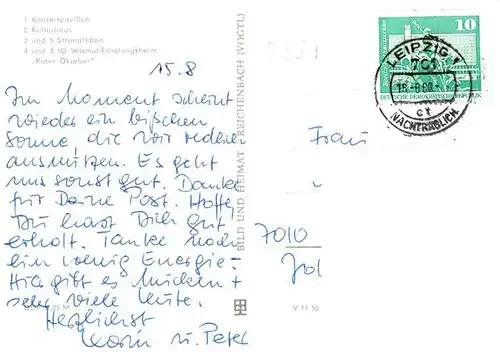 1 Konzertpavillon
2 Kulturhaus
3 und 5 Strandleben
4 und 6 IG Wismut-Erholungsheim
„Roter Oktober"
15.8
Im Moment scheint
wieder ein bißchen
Sonne, die wir redlich
ausnützen. Es geht
uns sonst gut. Danke
für Deine Post. Hoffe,
Du hast Dich gut
erholt. Tanke noch
ein wenig Energie.
Hier gibt es Mücken +
sehr viele Leute.
Herzlichst
Karin u. Peter
BILD UND HEIMAT REICHENBACH (VOGTL)
V 11 50
10
DEUTSCHE DEMOKRATISCHE REPUBLIK
LEIPZIG 1
701
ct
NACHTRÄGLICH
Frau
7010